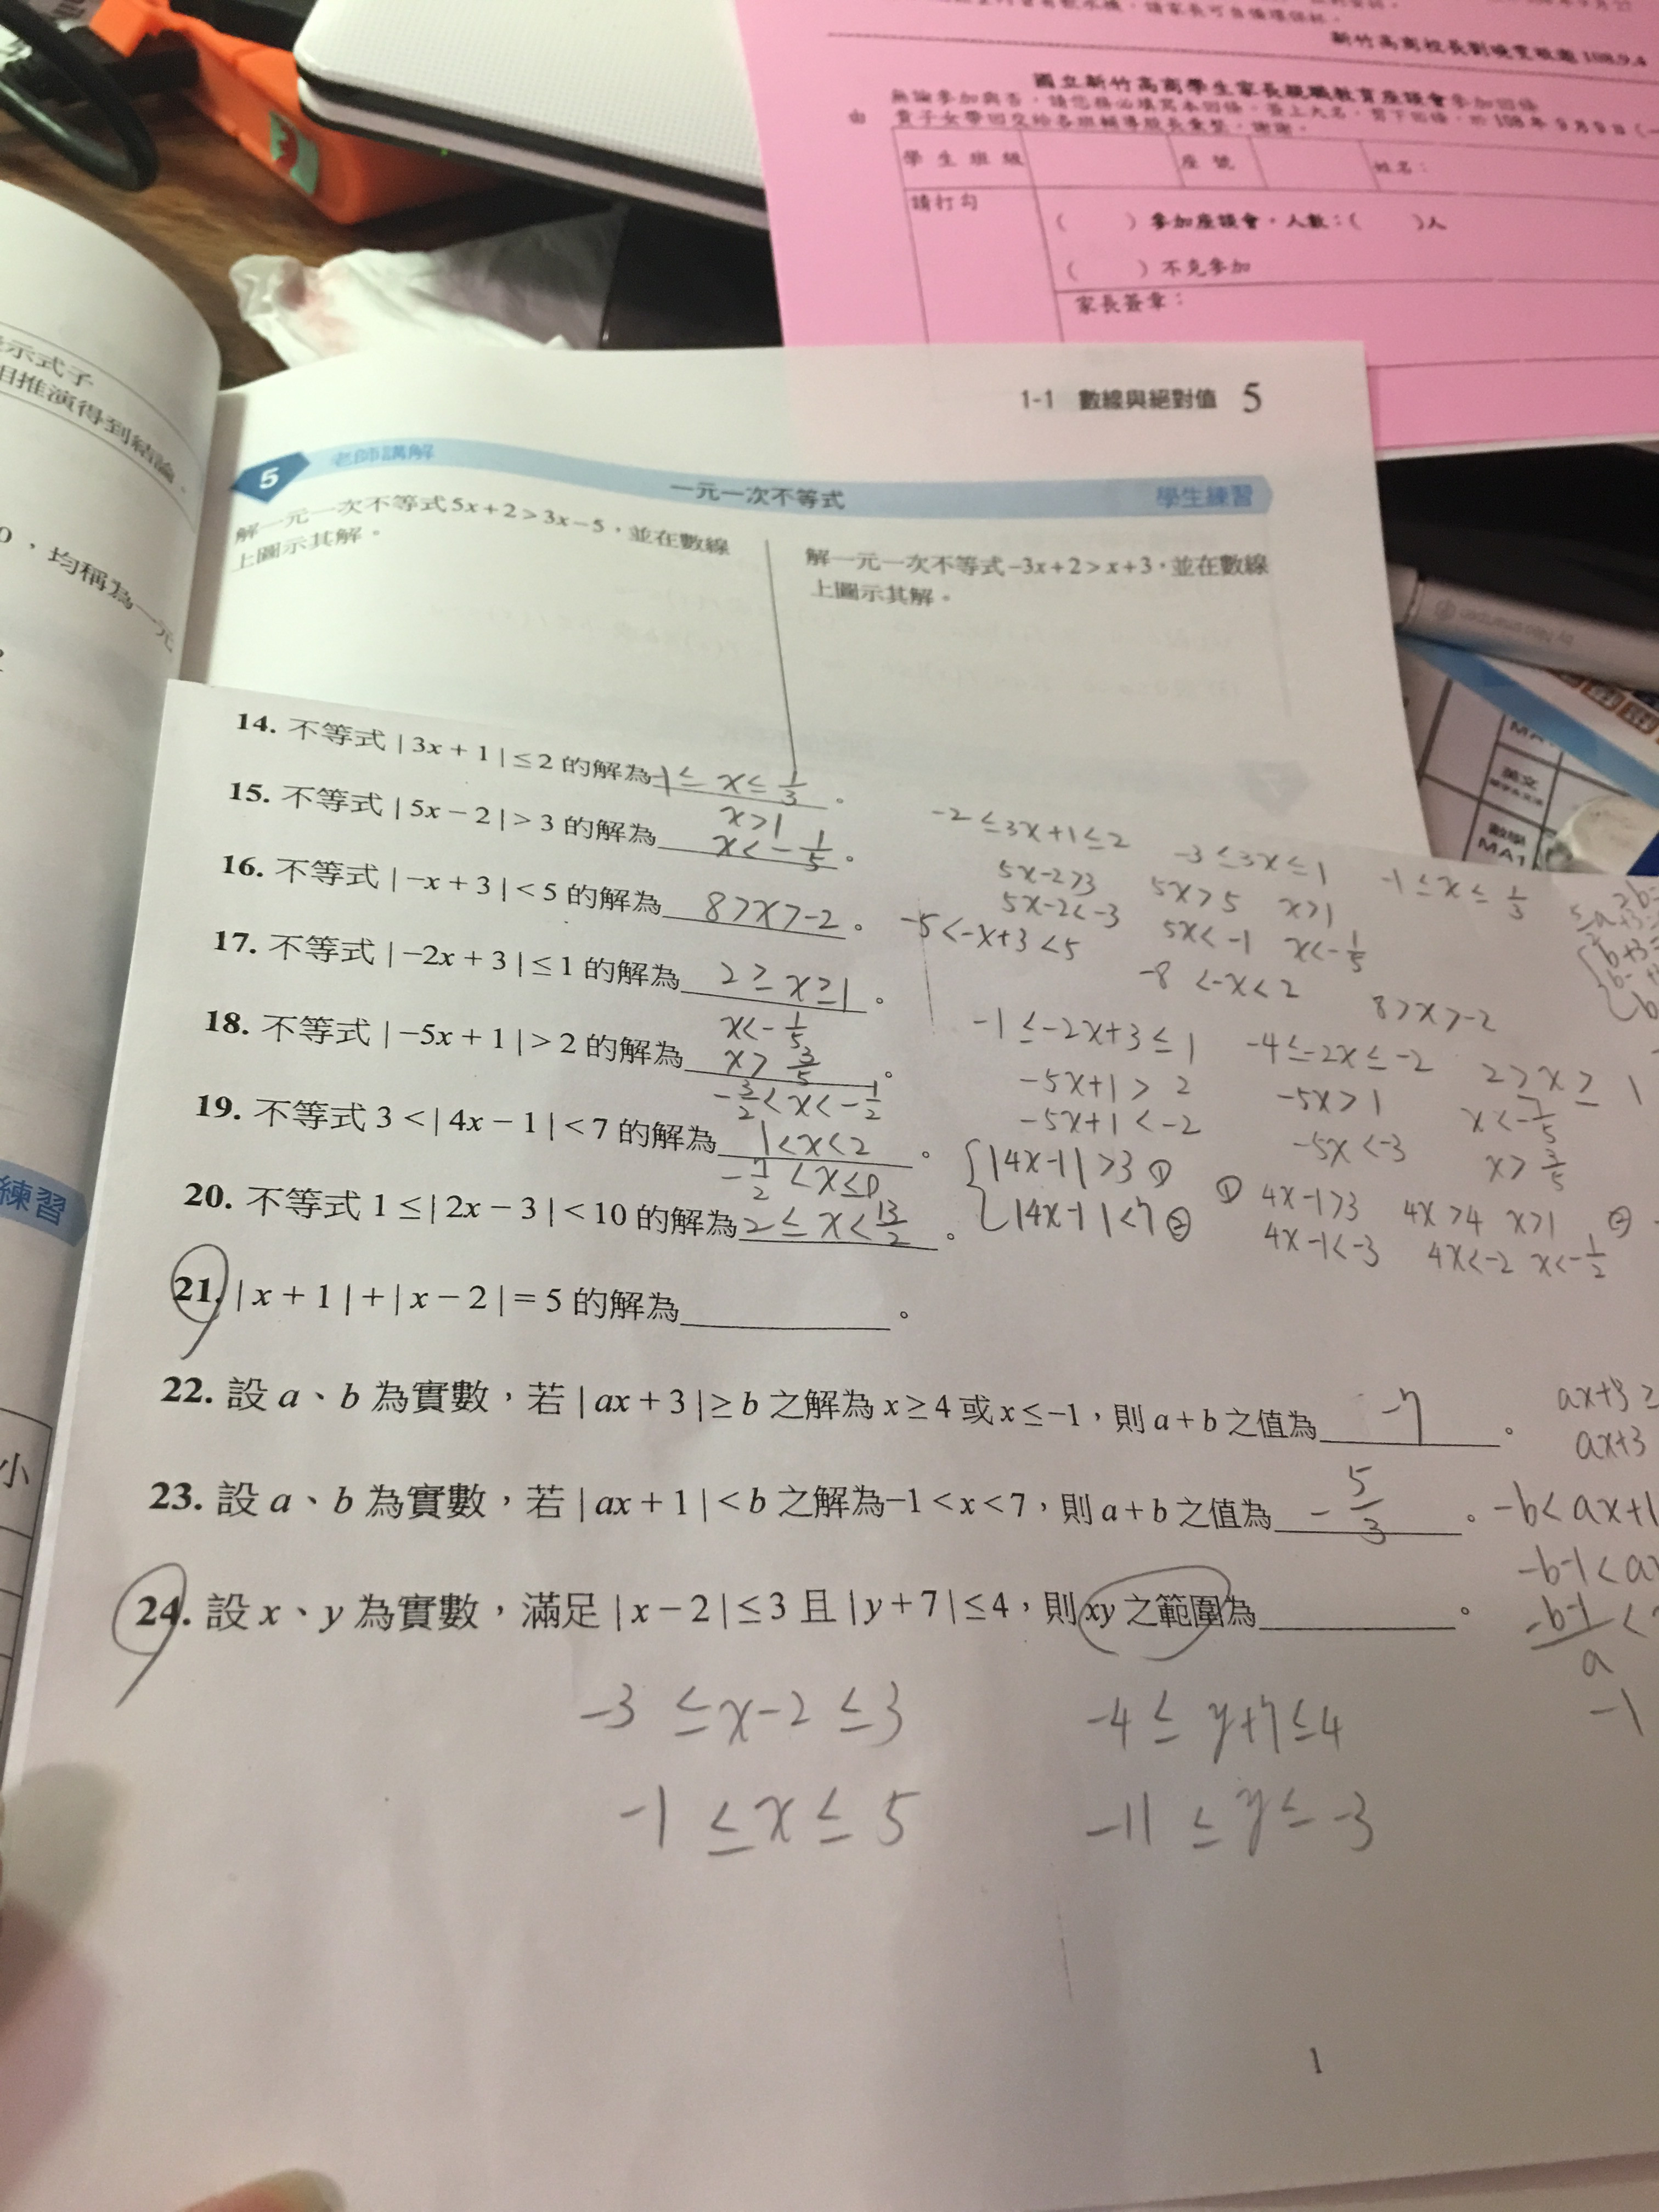 新竹高商校長劉曉雯敬邀 108.9.4
國立新竹高商學生家長親職教育座談會參加回條
無論參加與否,請您務必填寫本回條,簽上大名,剪下回條,於 108 年 9 月 9 日 (一
由 貴子女帶回交給各班輔導股長彙整,謝謝。
學 生 班 級 座 號 姓名:
請打勾
( )參加座談會,人數:( )人
( )不克參加
家長簽章:
示式子
相推演得到結論。
,均稱為一元
練習
小
1-1 數線與絕對值 5
5 老師講解 一元一次不等式 學生練習
解一元一次不等式5x+2>3x-5,並在數線
上圖示其解。
解一元一次不等式-3x+2>x+3,並在數線
上圖示其解。
英文
數學
MA1
14. 不等式 | 3x + 1 | ≤ 2 的解為 -1 ≤ x ≤ 1/3 。
-2 ≤ 3x+1 ≤ 2 -3 ≤ 3x ≤ 1 -1 ≤ x ≤ 1/3
15. 不等式 | 5x − 2 | > 3 的解為 x>1 x<-1/5 。
5x-2>3 5x>5 x>1
5x-2<-3 5x<-1 x<-1/5
16. 不等式 | −x + 3 | < 5 的解為 8>x>-2 。
-5<-x+3<5 -8<-x<2 8>x>-2
17. 不等式 | −2x + 3 | ≤ 1 的解為 2≥x≥1 。
-1≤-2x+3≤1 -4≤-2x≤-2 2≥x≥1
18. 不等式 | −5x + 1 | > 2 的解為 x<-1/5 x>3/5 。
-5x+1>2 -5x>1 x<-1/5
-5x+1<-2 -5x<-3 x>3/5
19. 不等式 3 < | 4x − 1 | < 7 的解為 -3/2<x<-1/2 1<x<2 。
{|4x-1|>3 ①
|4x-1|<7 ②
① 4x-1>3 4x>4 x>1 ②
4x-1<-3 4x<-2 x<-1/2
20. 不等式 1 ≤ | 2x − 3 | < 10 的解為 -7/2<x≤0 2≤x<13/2 。
21. | x + 1 | + | x − 2 | = 5 的解為 。
22. 設 a、b 為實數,若 | ax + 3 | ≥ b 之解為 x ≥ 4 或 x ≤ −1,則 a + b 之值為 -7 。
ax+3≥
ax+3
23. 設 a、b 為實數,若 | ax + 1 | < b 之解為−1 < x < 7,則 a + b 之值為 - 5/3 。
-b<ax+1
-b-1<ax
-b-1/a <
-1
24. 設 x、y 為實數,滿足 | x − 2 | ≤ 3 且 | y + 7 | ≤ 4,則 xy 之範圍為 。
-3 ≤ x-2 ≤ 3 -4 ≤ y+7 ≤ 4
-1 ≤ x ≤ 5 -11 ≤ y ≤ -3
1